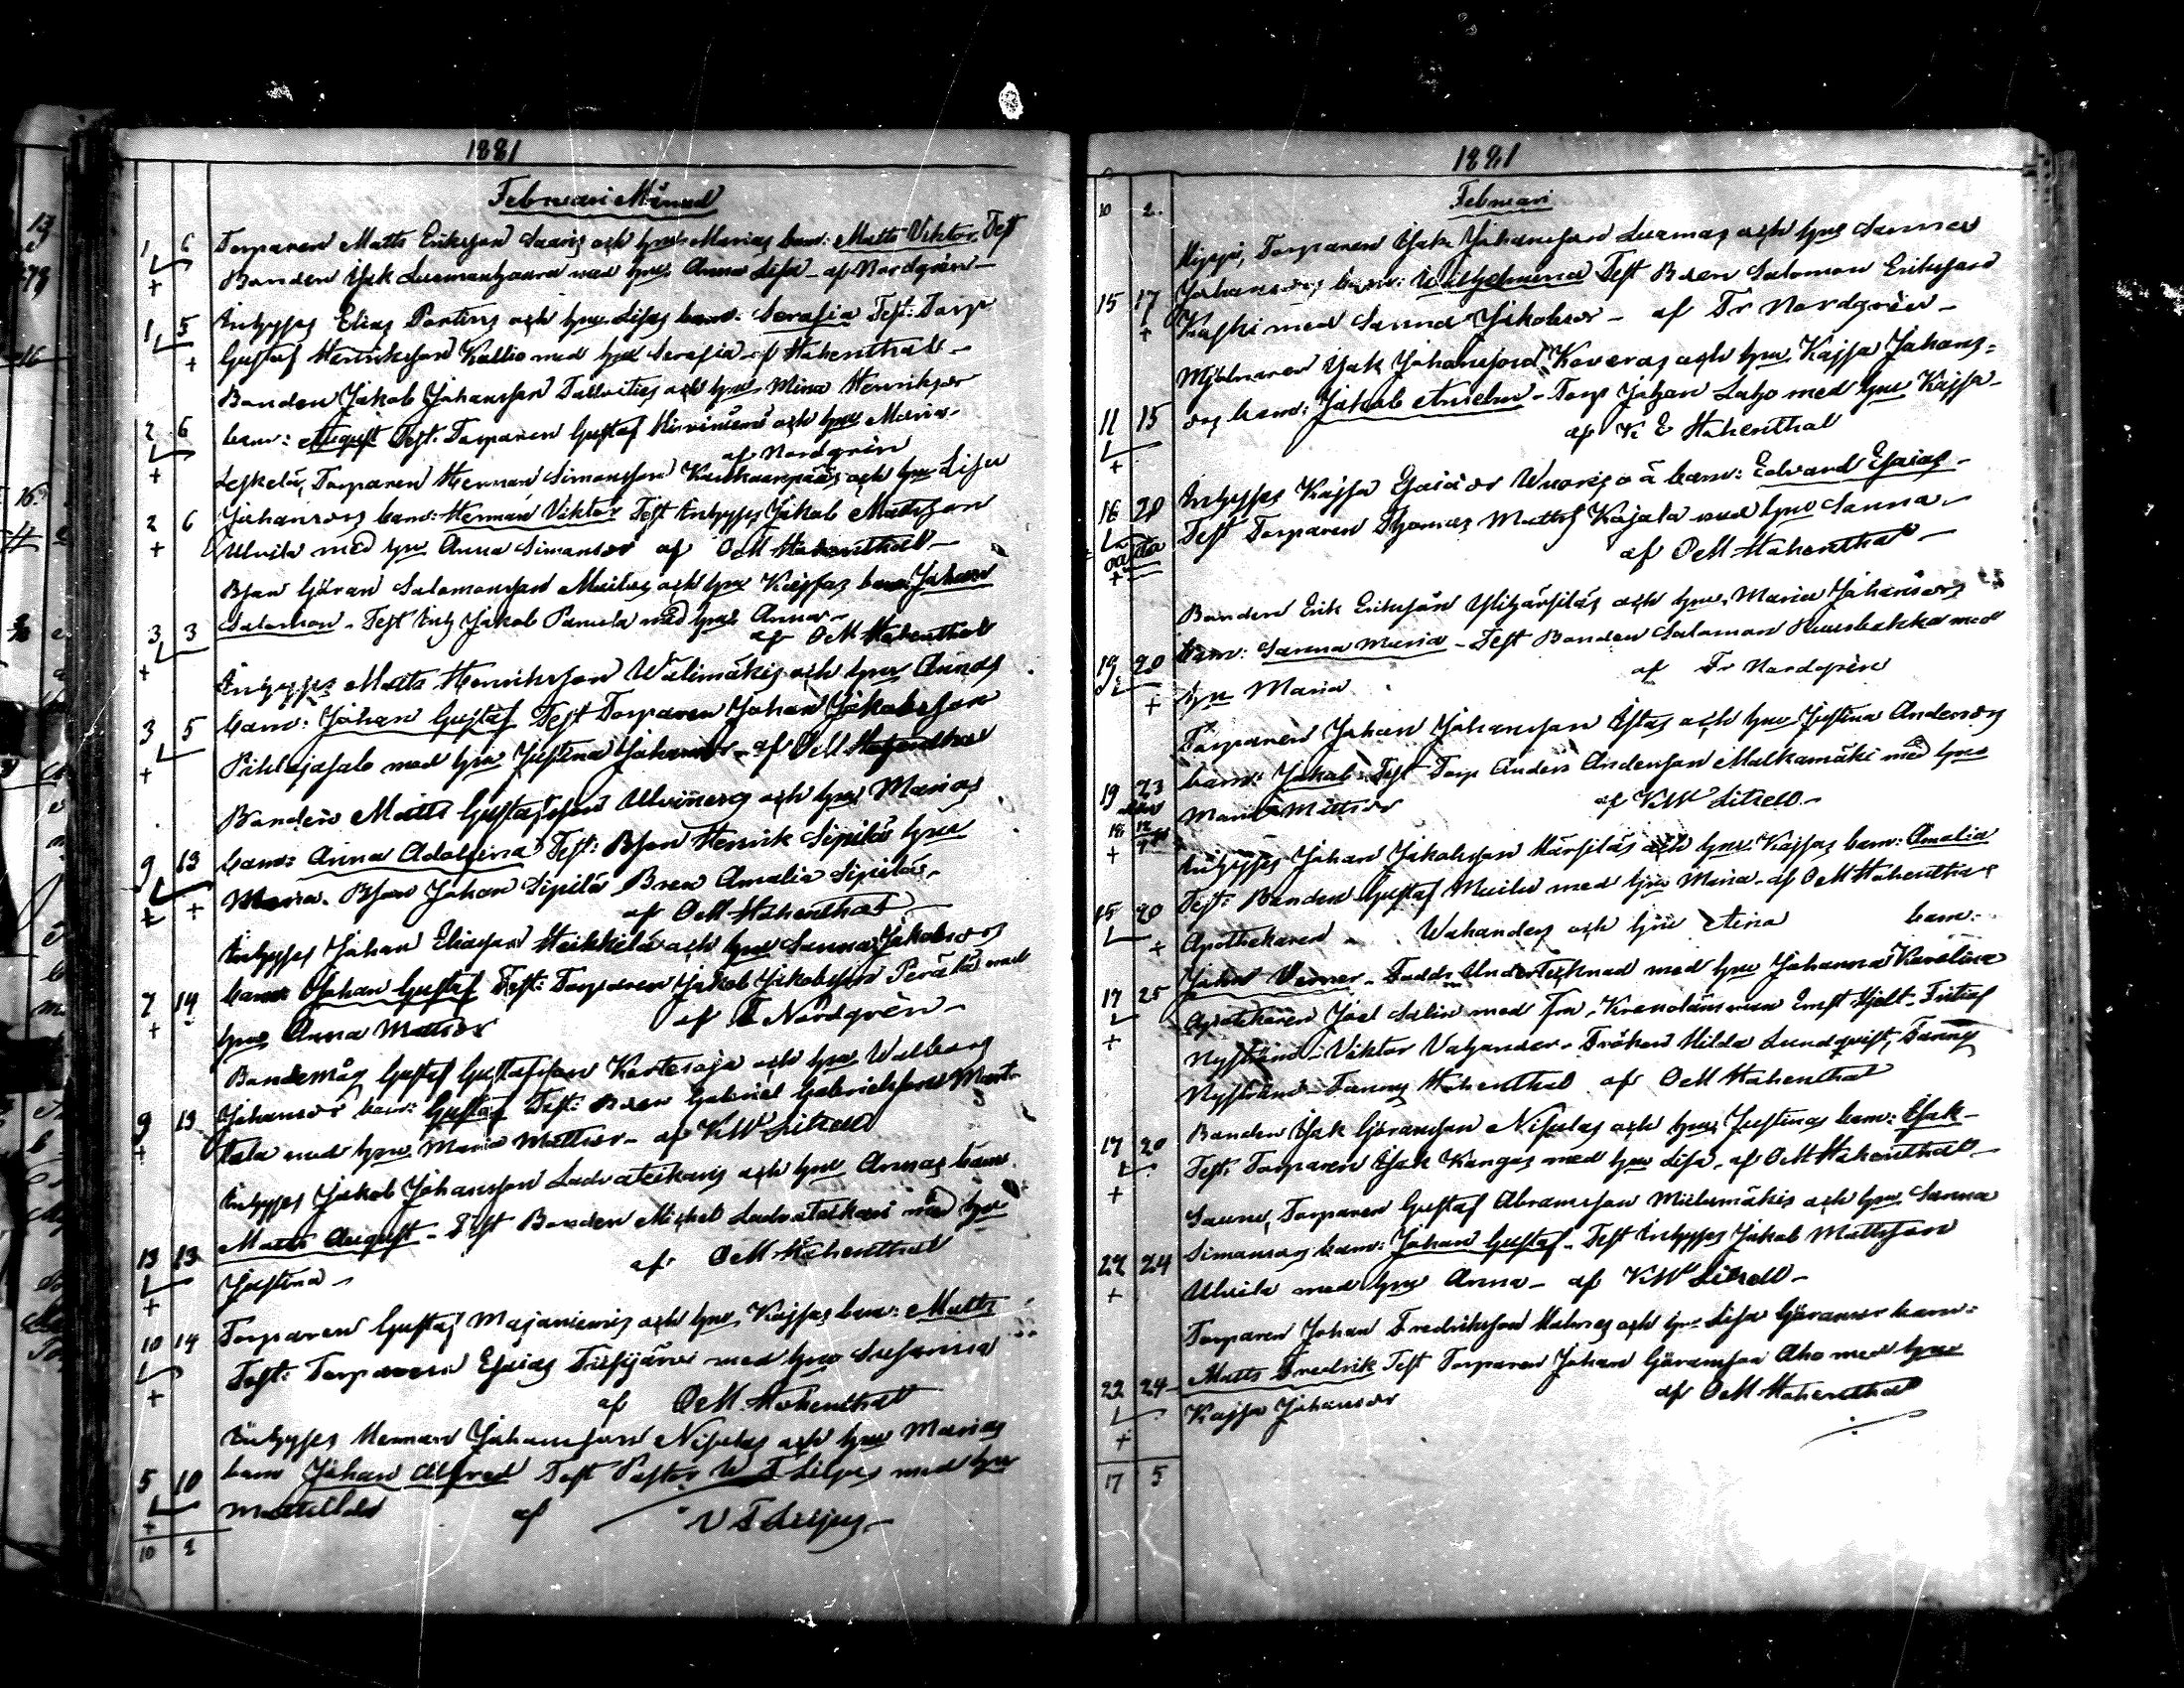 1881
Februari Månad
1 6 Torparen Matts Eriksson Saaris och hust. Marias barn: Matts Viktor. Test
+ Bonden Isak Luomanhaara med hust. Anna Lisa - af Nordgrén -
1 5 Inhyses Elias Pentins och hust. Lisas barn: Serafia Test: Torp
+ Gustaf Henriksson Kallio med hust Serafia af Hohenthal -
Bonden Jakob Johansson och hust. Mina Henriksdr
2 6 barn: August Test. Torparen Gustaf Hirviniemi och hust Maria -
+ af Nordgrén
Leskelä, Torparen Herman Simonsson och hust Lisa
2 6 Johansdrs barn: Herman Viktor Test Inhyses Jakob Mattsson
+ Ulvila med hust Anna Simonsdr af OM Hohenthal -
Bson Göran Salomonsson Muilus och hust Kajsas barn: Johan
3 3 Salomon - Test Inh Jakob Panula med hust Anna -
+ af OM Hohenthal
Inhyses Matts Henriksson Wälimäkis och hust Annas
3 5 barn: Johan Gustaf Test Torparen Johan Jakobsson
+ Pihlajasalo med hust Justina Johansdr - af OM Hohenthal
Bonden Matts Gustafsson och hust Marias
9 13 barn: Anna Adolfina Test: Bson Henrik Sipilä hust
+ + Maria. Bson Johan Sipilä Amalia Sipilä -
af OM Hohenthal
Inhyses Johan Eliasson Heikkilä och hust Sanna Jakobsdrs
7 14 barn Johan Gustaf Test: Torparen Jakob Jakobsson Perälä med
+ hust Anna Mattsdr af F Nordgrén -
Bondemåg Gustaf Gustafsson Kortesoja och hust Walborg
9 13 Johansdr barn: Gustaf Test: Gabriel Gabrielsson Mart-
+ tala med hust Maria Mattsdr - af KW Litzell
Inhyses Jakob Johansson Ladvateikaris och hust Annas barn
13 13 Matts August - Test Bonden Michel Ladvateikari med hust
+ Justina - af OM Hohenthal
10 14 Torparen Gustaf Majaniemis och hust Kajsas barn: Matts
+ Test: Torparen Esaias Iisijärvi med hust Susanna
af OM Hohenthal
Inhyses Herman Johansson Nisulas och hust Marias
5 10 barn Johan Alfred Test Pastor W T Lilius med hust
+ Mathilda af V T Lilius -
10 2
1881
10 2. Februari
Torparen Isak Johansson Luomas och hust Sannas
15 17 Johansdrs barn: Wilhelmina Test Salomon Eriksson
+ Kaski med Sanna Jakobsdr - af Fr Nordgrén -
Mjölnaren Isak Johansson Koveros och hust. Kajsa Johans=
11 15 drs barn: Jakob Anselm - Torp Johan Laho med hust Kajsa -
+ af K E Hohenthal
16 20 Inhyses Kajsa Esaiadr Wuoris o ä barn: Edvard Esaias -
oäkta Test Torparen Thomas Matts Kajala med hust Sanna -
+ af OM Hohenthal -
Bonden Erik Eriksson Ylihärsiläs och hust. Maria Johansdrs
19 20 barn: Sanna Maria - Test Bonden Salomon med
+ hust Maria af Fr Nordgrén
Torparen Johan Johansson och hust Justina Andersdrs
19 23 barn: Jakob. Test Torp Anders Andersson Malkamäki med hust
Maria Mattsdr af KW Litzell -
+ Inhyses Johan Jakobsson Härsiläs och hust. Kajsas barn: Amalia
15 20 Test: Bonden Gustaf Muilu med hust Maria - af OM Hohenthal
+ Apothekaren Wahanders och hust Aina barn:
17 25 John Verner - Undertecknad med hust Johanna Karolina
+ Apotekaren Joel Salin med Fru, Kronolänsman Ernst Hjelt - Fritiof
Nyström - Viktor Vahander - Fröken Hilda Lundqvist, Fanny
Nyström - Fanny Hohenthal af OM Hohenthal
17 20 Bonden Isak Göransson Nisulas och hust Justinas barn: Isak -
+ Test: Torparen Isak Kangas med hust Lisa - af OM Hohenthal -
Torparen Gustaf Abramsson och hust Sanna
22 24 Simonsdrs barn: Johan Gustaf - Test Inhyses Jakob Mattsson
+ Ulvila med hust Anna - af KW Litzell -
Torparen Johan Fredriksson och hust Lisa Göransdr barn:
22 24 Matts Fredrik Test Torparen Johan Göransson Aho med hust
+ Kajsa Johansdr af OM Hohenthal
17 5